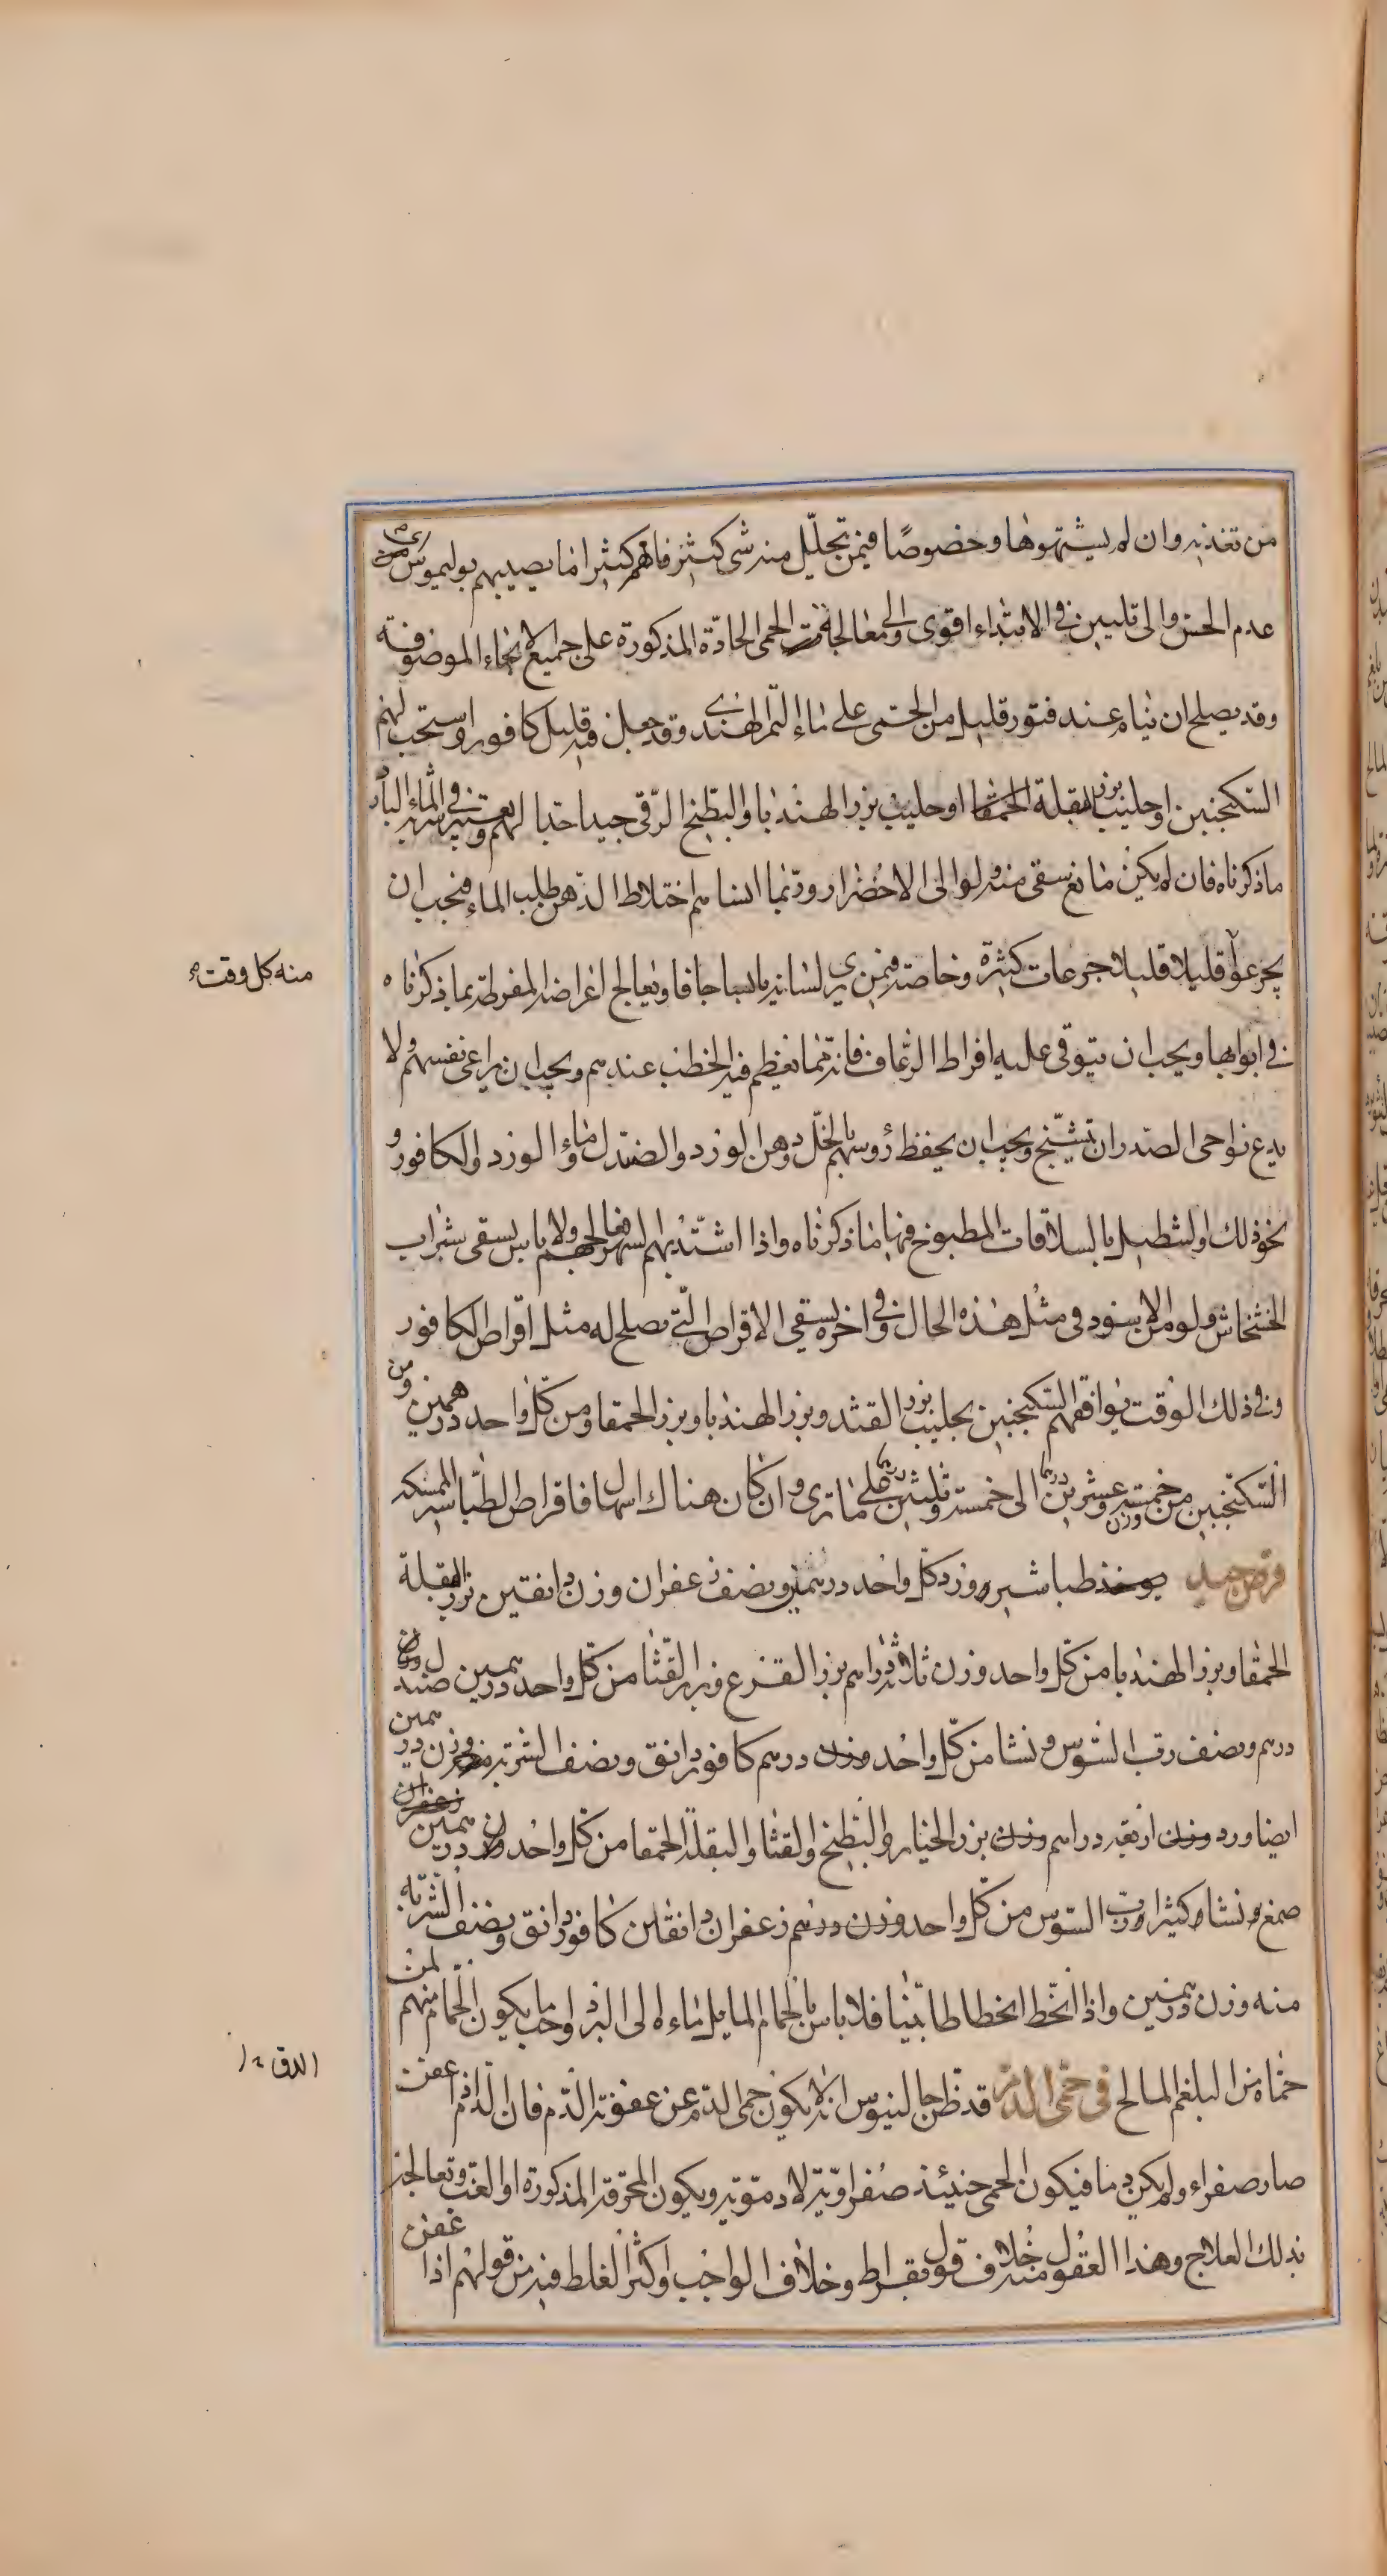 من تغذيه وان لم يشتهوها وخصوصًا فيمن تحلّل منه شى كثير فانهم كثيرا ما يصيبهم بوليموس اى
عدم الحس والى تليين فى الابتداء اقوى والى معالجة الحمى الحادّة المذكورة على جميع الانحاء الموصوفة
وقد يصلح ان ينام عند فتور قليل من الحمى على ماء التمر الهندى وقد جعل فيه قليل كافور واستحب لهم
السكنجبين او حليب بزر البقلة الحمقا او حليب بزر الهندبا والبطيخ الرقى جيد جدا لهم ويعتبر فى الماء البارد
ماذكرناه فان لم يكن مانع سقى منه ولو الى الاخضرار وربما انساهم اختلاط الذهن طلب الماء فيجب ان
يجرعوا قليلا قليلا جرعات كثيرة وخاصة فيمن يرى لسانه يابسا جافا ويعالج اعراضه المفرطة بما ذكرناه
منه كل وقت
فى ابوابها ويجب ان يتوقى عليه افراط الرعاف فانه مما يعظم فيه الخطب عندهم ويجب ان يراعى نفسهم ولا
يدع نواحى الصدر ان تتشنج ويجب ان يحفظ رؤسهم بالخل ودهن الورد والصندل وماء الورد والكافور و
نحو ذلك او لشطيل بالسلاقات المطبوخ فيها ما ذكرناه واذا اشتد بهم السهر فعالجهم ولا باس بسقى شراب
الخشخاش ولو من الاسود فى مثل هذه الحال وفى اخره يسقى الاقراص التى تصلح له مثل اقراص الكافور
وفى ذلك الوقت يوافقهم السكنجبين بحليب بزر القثد وبزر الهندبا وبزر الحمقا من كل واحد درهمين ومن
السكنجبين من خمسة وعشرين درهما الى خمسة وثلثين على ما ترى وان كان هناك اسهال فاقراص الطباشير الممسكه
قرص جيد يوخذ طباشير ورد كل واحد درهمين ونصف زعفران وزن دانقين بزر البقلة
الحمقا وبزر الهندبا من كل واحد وزن ثلاثة دراهم بزر القرع وبزر القثا من كل واحد درهمين صندل وزن
درهم ونصف رب السوس ونشا من كل واحد وزن درهم كافور دانق ونصف الشربة منه وزن درهمين
ايضا ورد وزن اربعة دراهم وزن بزر الخيار والبطيخ والقثا والبقلة الحمقا من كل واحد وزن درهمين زعفران
صمغ ونشا وكثيرا ورب السوس من كل واحد وزن درهم زعفران دانقان كافور دانق ونصف الشربة
منه وزن درهمين واذا انحط انحطاطا بينا فلا باس بالحمام المايل ماءه الى البرد واحب ما يكون الحمام منهم لمن
حماه من البلغم المالح فى حمى الدم قد ظن جالينوس انه لا يكون حمى الدم عن عفونة الدم فان الدم اذا عفن
الدق
صار صفراء ولم يكن دما فيكون الحمى حينئذ صفراوية لا دموية ويكون المحرقة المذكورة او الغب وتعالج
بذلك العلاج وهذا القول منه خلاف قول بقراط وخلاف الواجب واكثر الغلط فيه من قولهم اذا عفن